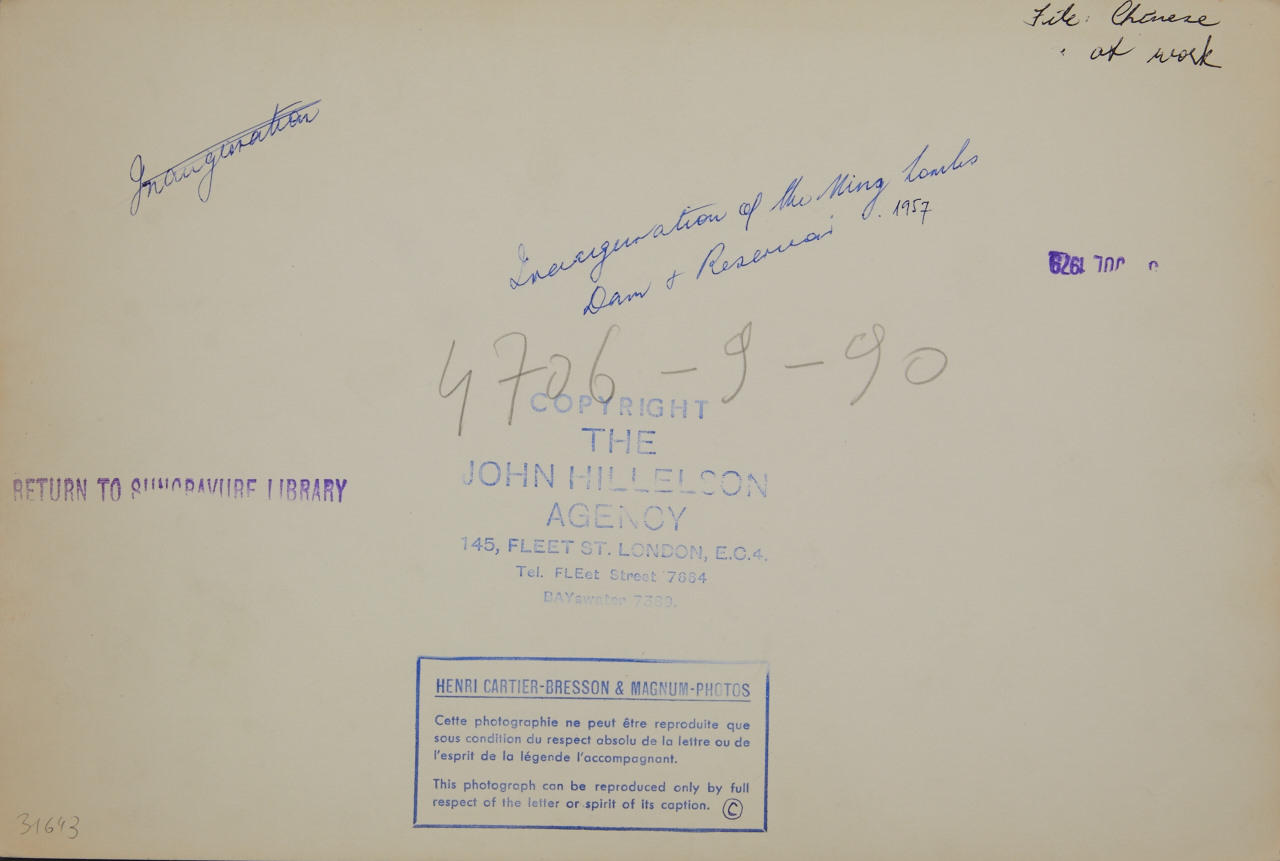 File: Chinese
at work
Inauguration
Inauguration of the Ming tombs
Dam + Reservoir . 1957
JUL 1979
4706-9-90
COPYRIGHT
THE
JOHN HILLELSON
AGENCY
145, FLEET ST. LONDON, E.C.4.
Tel. FLEet Street 7884
BAYswater 7389.
RETURN TO SUNGRAVURE LIBRARY
HENRI CARTIER-BRESSON & MAGNUM-PHOTOS
Cette photographie ne peut être reproduite que
sous condition du respect absolu de la lettre ou de
l'esprit de la légende l'accompagnant.
This photograph can be reproduced only by full
respect of the letter or spirit of its caption. ©
31643